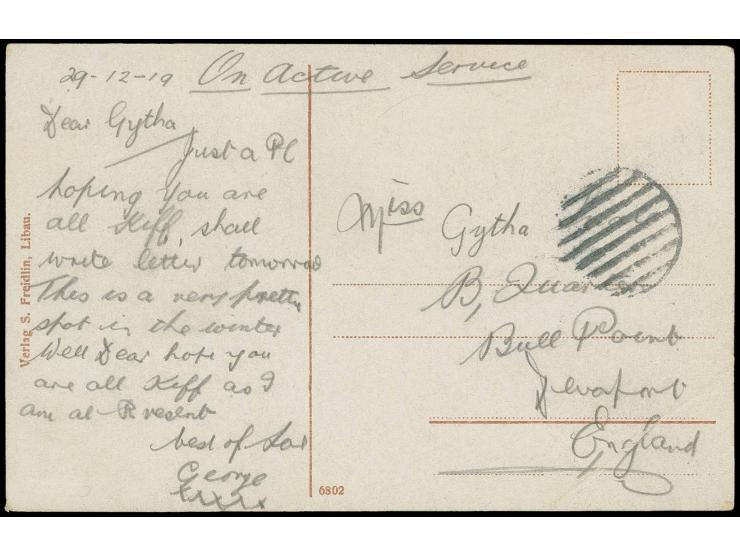 29-12-19 On Active Service
Dear Gytha
Just a PC
hoping you are
all Kiff, shall
write letter tomorrow
This is a very pretty
spot in the winter
Well Dear hope you
are all Kiff as I
am at Present
best of
George
xxxxx
Miss Gytha
B, Quarters
Bull Point
Devonport
England
Verlag S. Freidlin, Libau.
6802